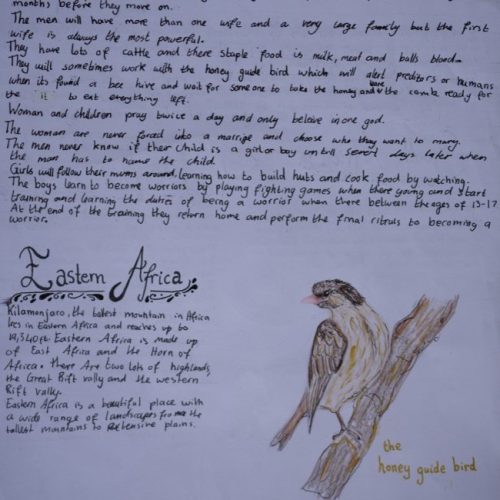 months before they move on.
The men will have more than one wife and a very large family but the first
wife is always the most powerful.
They have lots of cattle and there staple food is milk, meat and balls blood.
They will sometimes work with the honey guide bird which will alert preditors or humans
when its found a bee hive and wait for someone to take the honey and leave the comb ready for
the it to eat everything left.
Woman and children pray twice a day and only beleive in one god.
The woman are never forced into a marrige and choose who they want to marry.
The men never know if ther child is a girl or boy untill seven days later when
the man has to name the child.
Girls will follow their mums around, learning how to build huts and cook food by watching.
The boys learn to become worriors by playing fighting games when there young and start
training and learning the duties of being a worrior when there between the ages of 13-17
At the end of the training they return home and perform the final rituls to becoming a
worrior.
Eastern Africa
Kilamonjaro, the tallest mountain in Africa
lies in Eastern Africa and reaches up to
19,340ft. Eastern Africa is made up
of East Africa and the Horn of
Africa. There Are two lots of highlands,
the Great Rift vally and the western
Rift vally.
Eastern Africa is a beautiful place with
a wide range of landscapes from the
tallest mountains to extensive plains.
the
honey guide bird